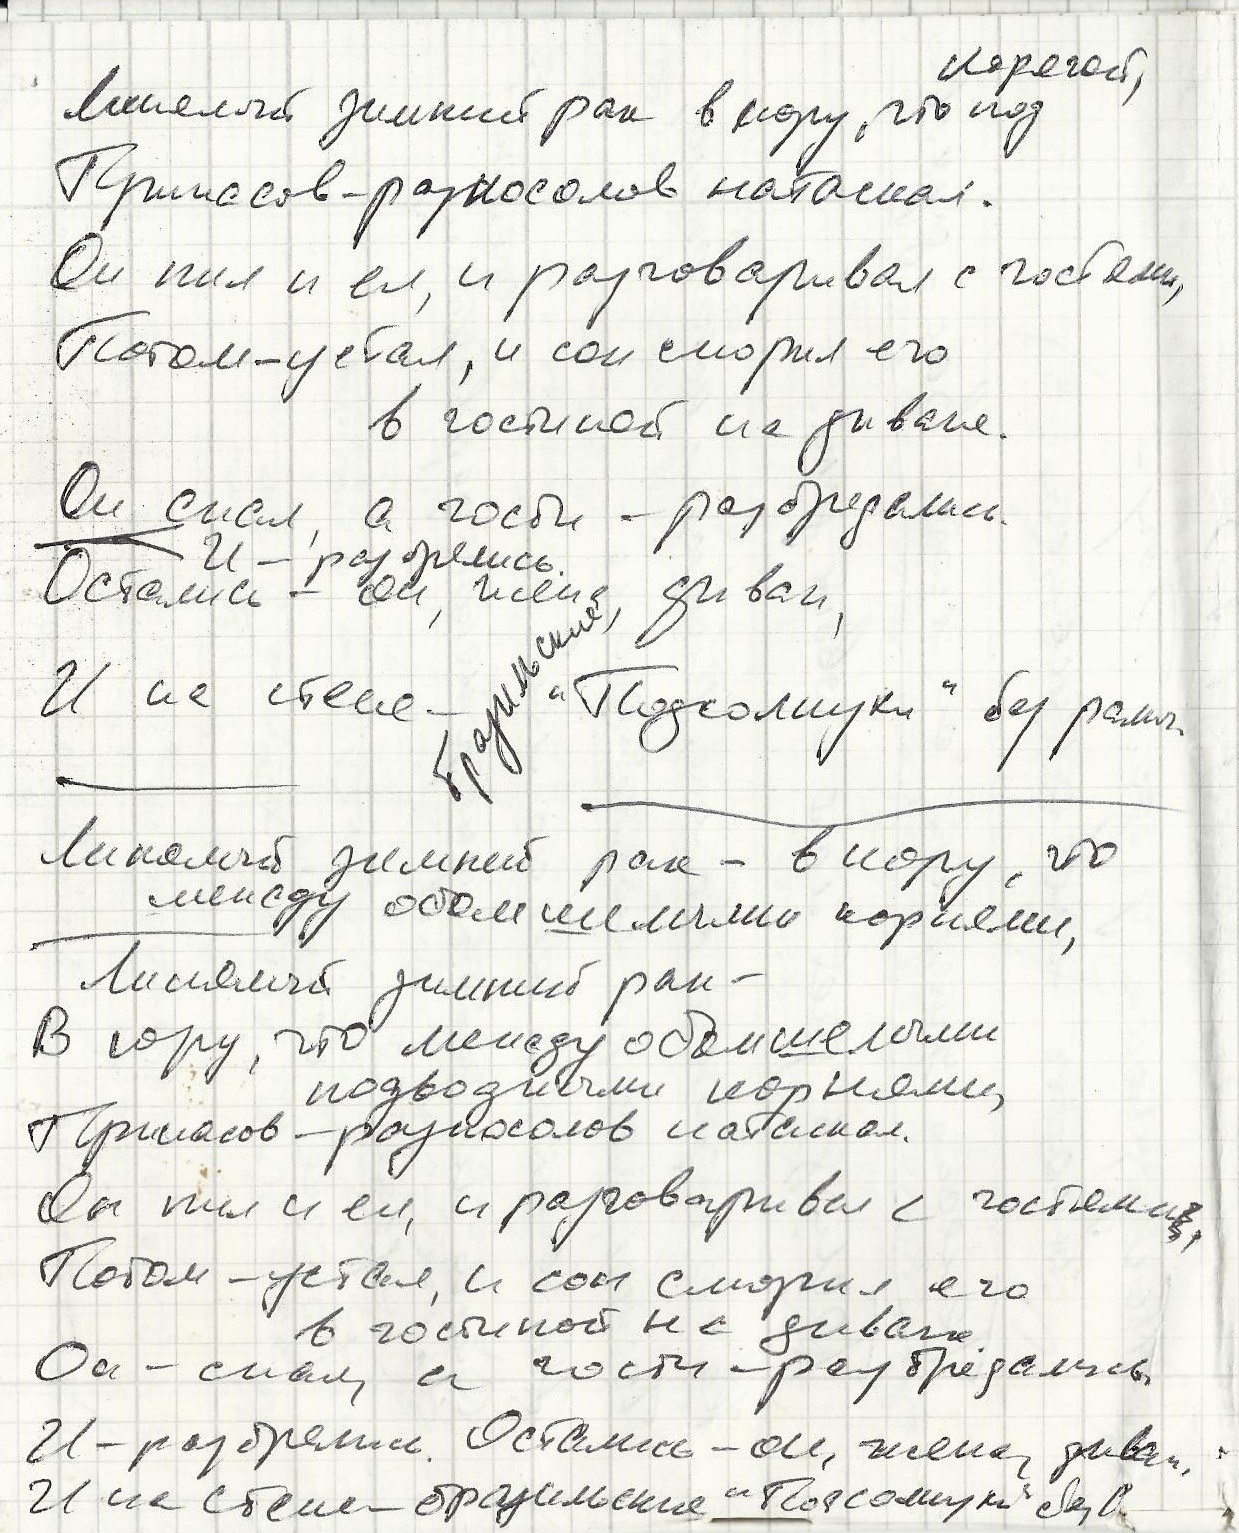 корягой,
Линялый зимний рак в нору, что под
Припасов-разносолов натаскал.
Он пил и ел, и разговаривал с гостями,
Потом-устал, и сон сморил его
в гостиной на диване.
Он спал, а гости - разбредались.
И - разбрелись.
Остались - он, жена, диван,
бразильские
И на стене - "Подсолнухи" без рамы.
Линялый зимний рак - в нору, что
между обомшелыми корнями,
Линялый зимний рак -
В нору, что между обомшелыми
подводными корнями,
Припасов-разносолов натаскал.
Он пил и ел, и разговаривал с гостями,
Потом - устал, и сон сморил его
в гостиной на диване
Он - спал, а гости - разбредались
И - разбрелись. Остались - он, жена, диван,
И на стене - бразильские "Подсолнухи" без